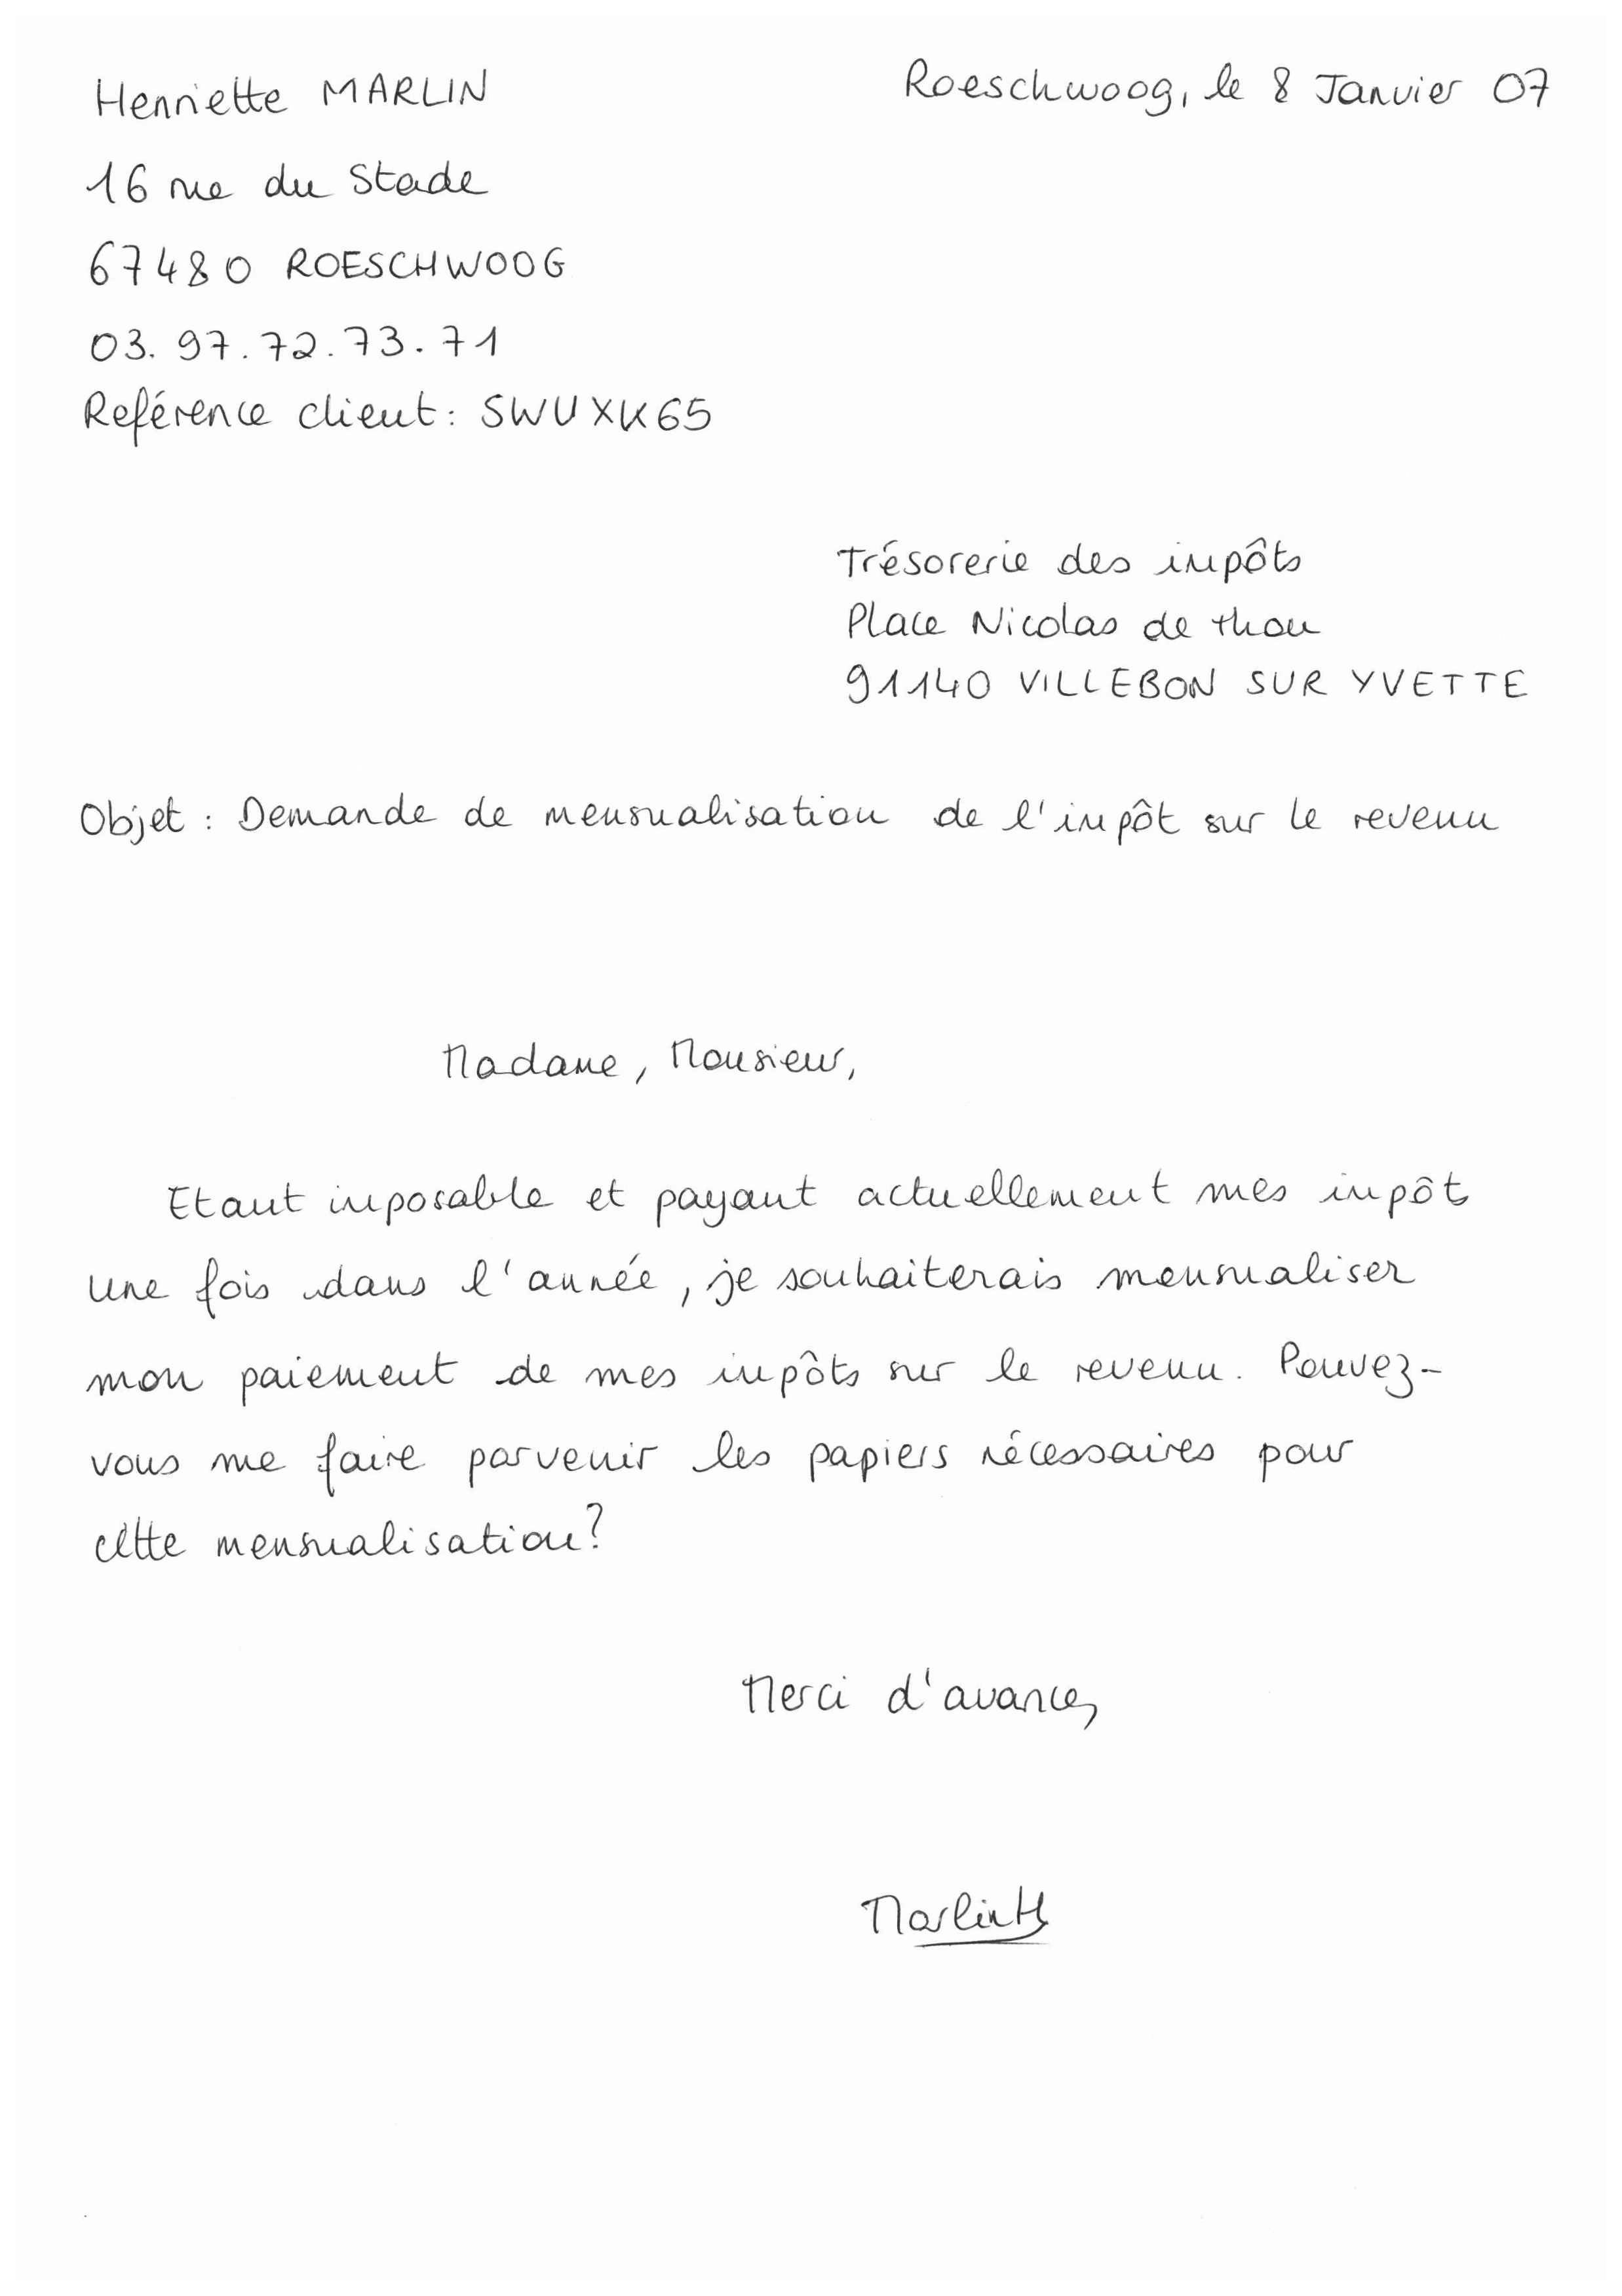 Henriette MARLIN
Roeschwoog, le 8 Janvier 07
16 rue du Stade
67480 ROESCHWOOG
03. 97. 72. 73. 71
Reférence client : SWUXK65
Trésorerie des impôts
Place Nicolas de thou
91140 VILLEBON SUR YVETTE
Objet : Demande de mensualisation de l'impôt sur le revenu
Madame, Monsieur,
Etant imposable et payant actuellement mes impôts
une fois dans l'année, je souhaiterais mensualiser
mon paiement de mes impôts sur le revenu. Pouvez-
vous me faire parvenir les papiers nécessaires pour
cette mensualisation?
Merci d'avance,
Marlin H